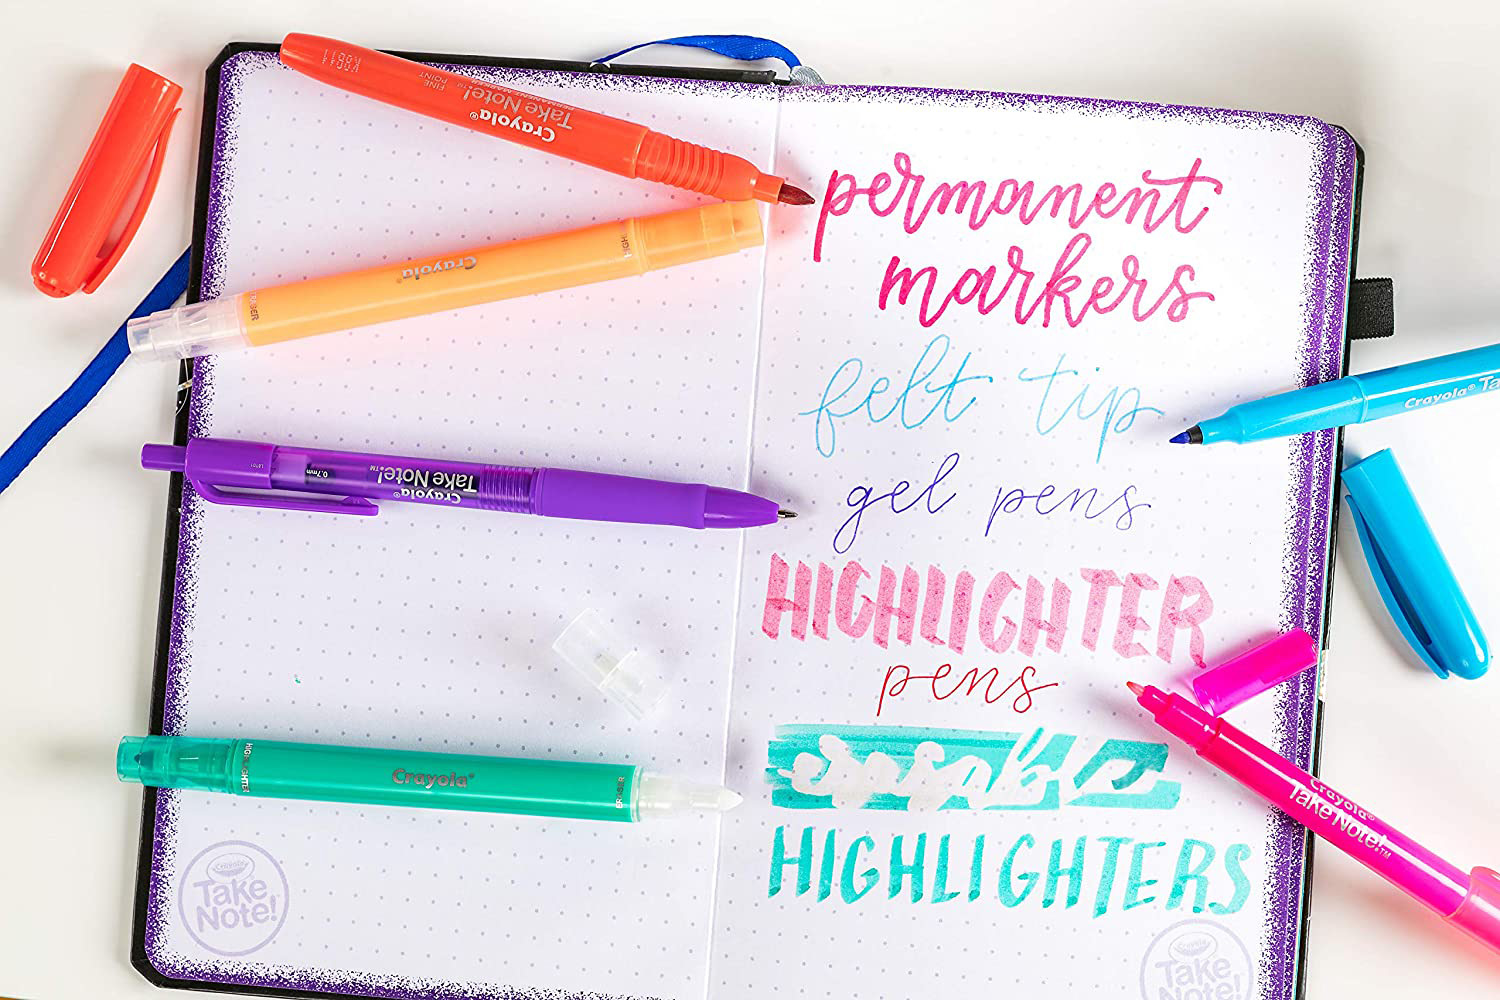 Crayola®
Take Note!™
PERMANENT MARKER
FINE
POINT
Crayola®
ERASER
Crayola®
Take Note!™
0.7mm
HIGHLIGHTER
Crayola®
ERASER
Crayola
Take
Note!
permanent
markers
felt tip
gel pens
HIGHLIGHTER
pens
erasable
HIGHLIGHTERS
Crayola® Ta
Crayola®
Take Note!™
Crayola
Take
Note!